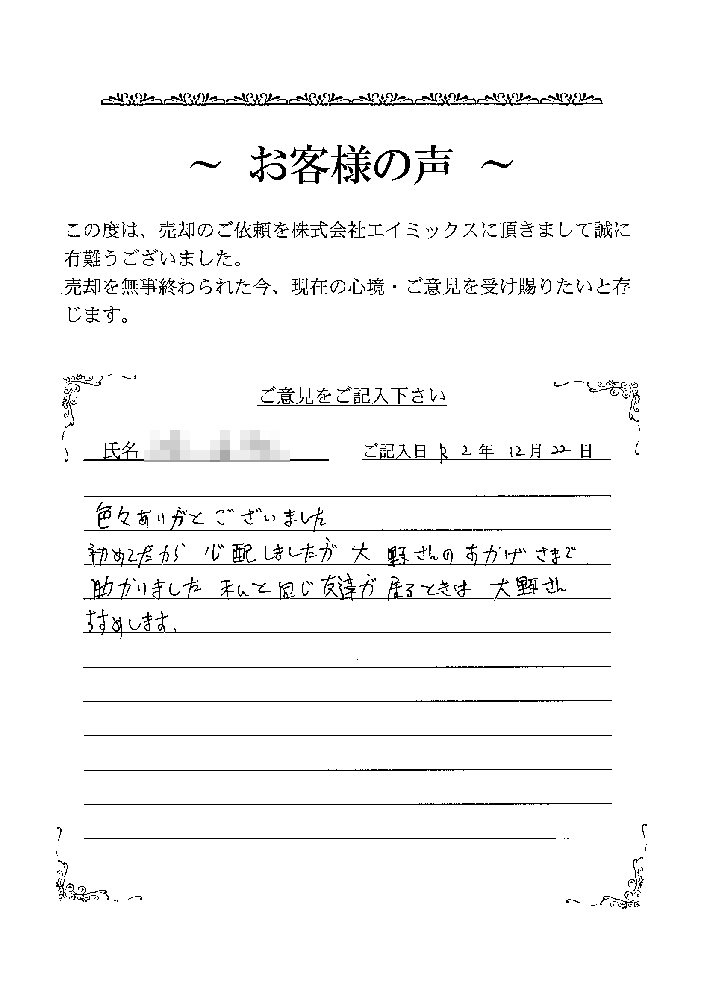 ～ お客様の声 ～
この度は、売却のご依頼を株式会社エイミックスに頂きまして誠に
有難うございました。
売却を無事終わられた今、現在の心境・ご意見を受け賜りたいと存
じます。
ご意見をご記入下さい
氏名 ご記入日 R 2 年 12 月 22 日
色々ありがとございました
初めてだから 心配しましたが 大野さんのおかげさまで
助かりました 私と同じ友達が 売るときは 大野さん
すすめします。